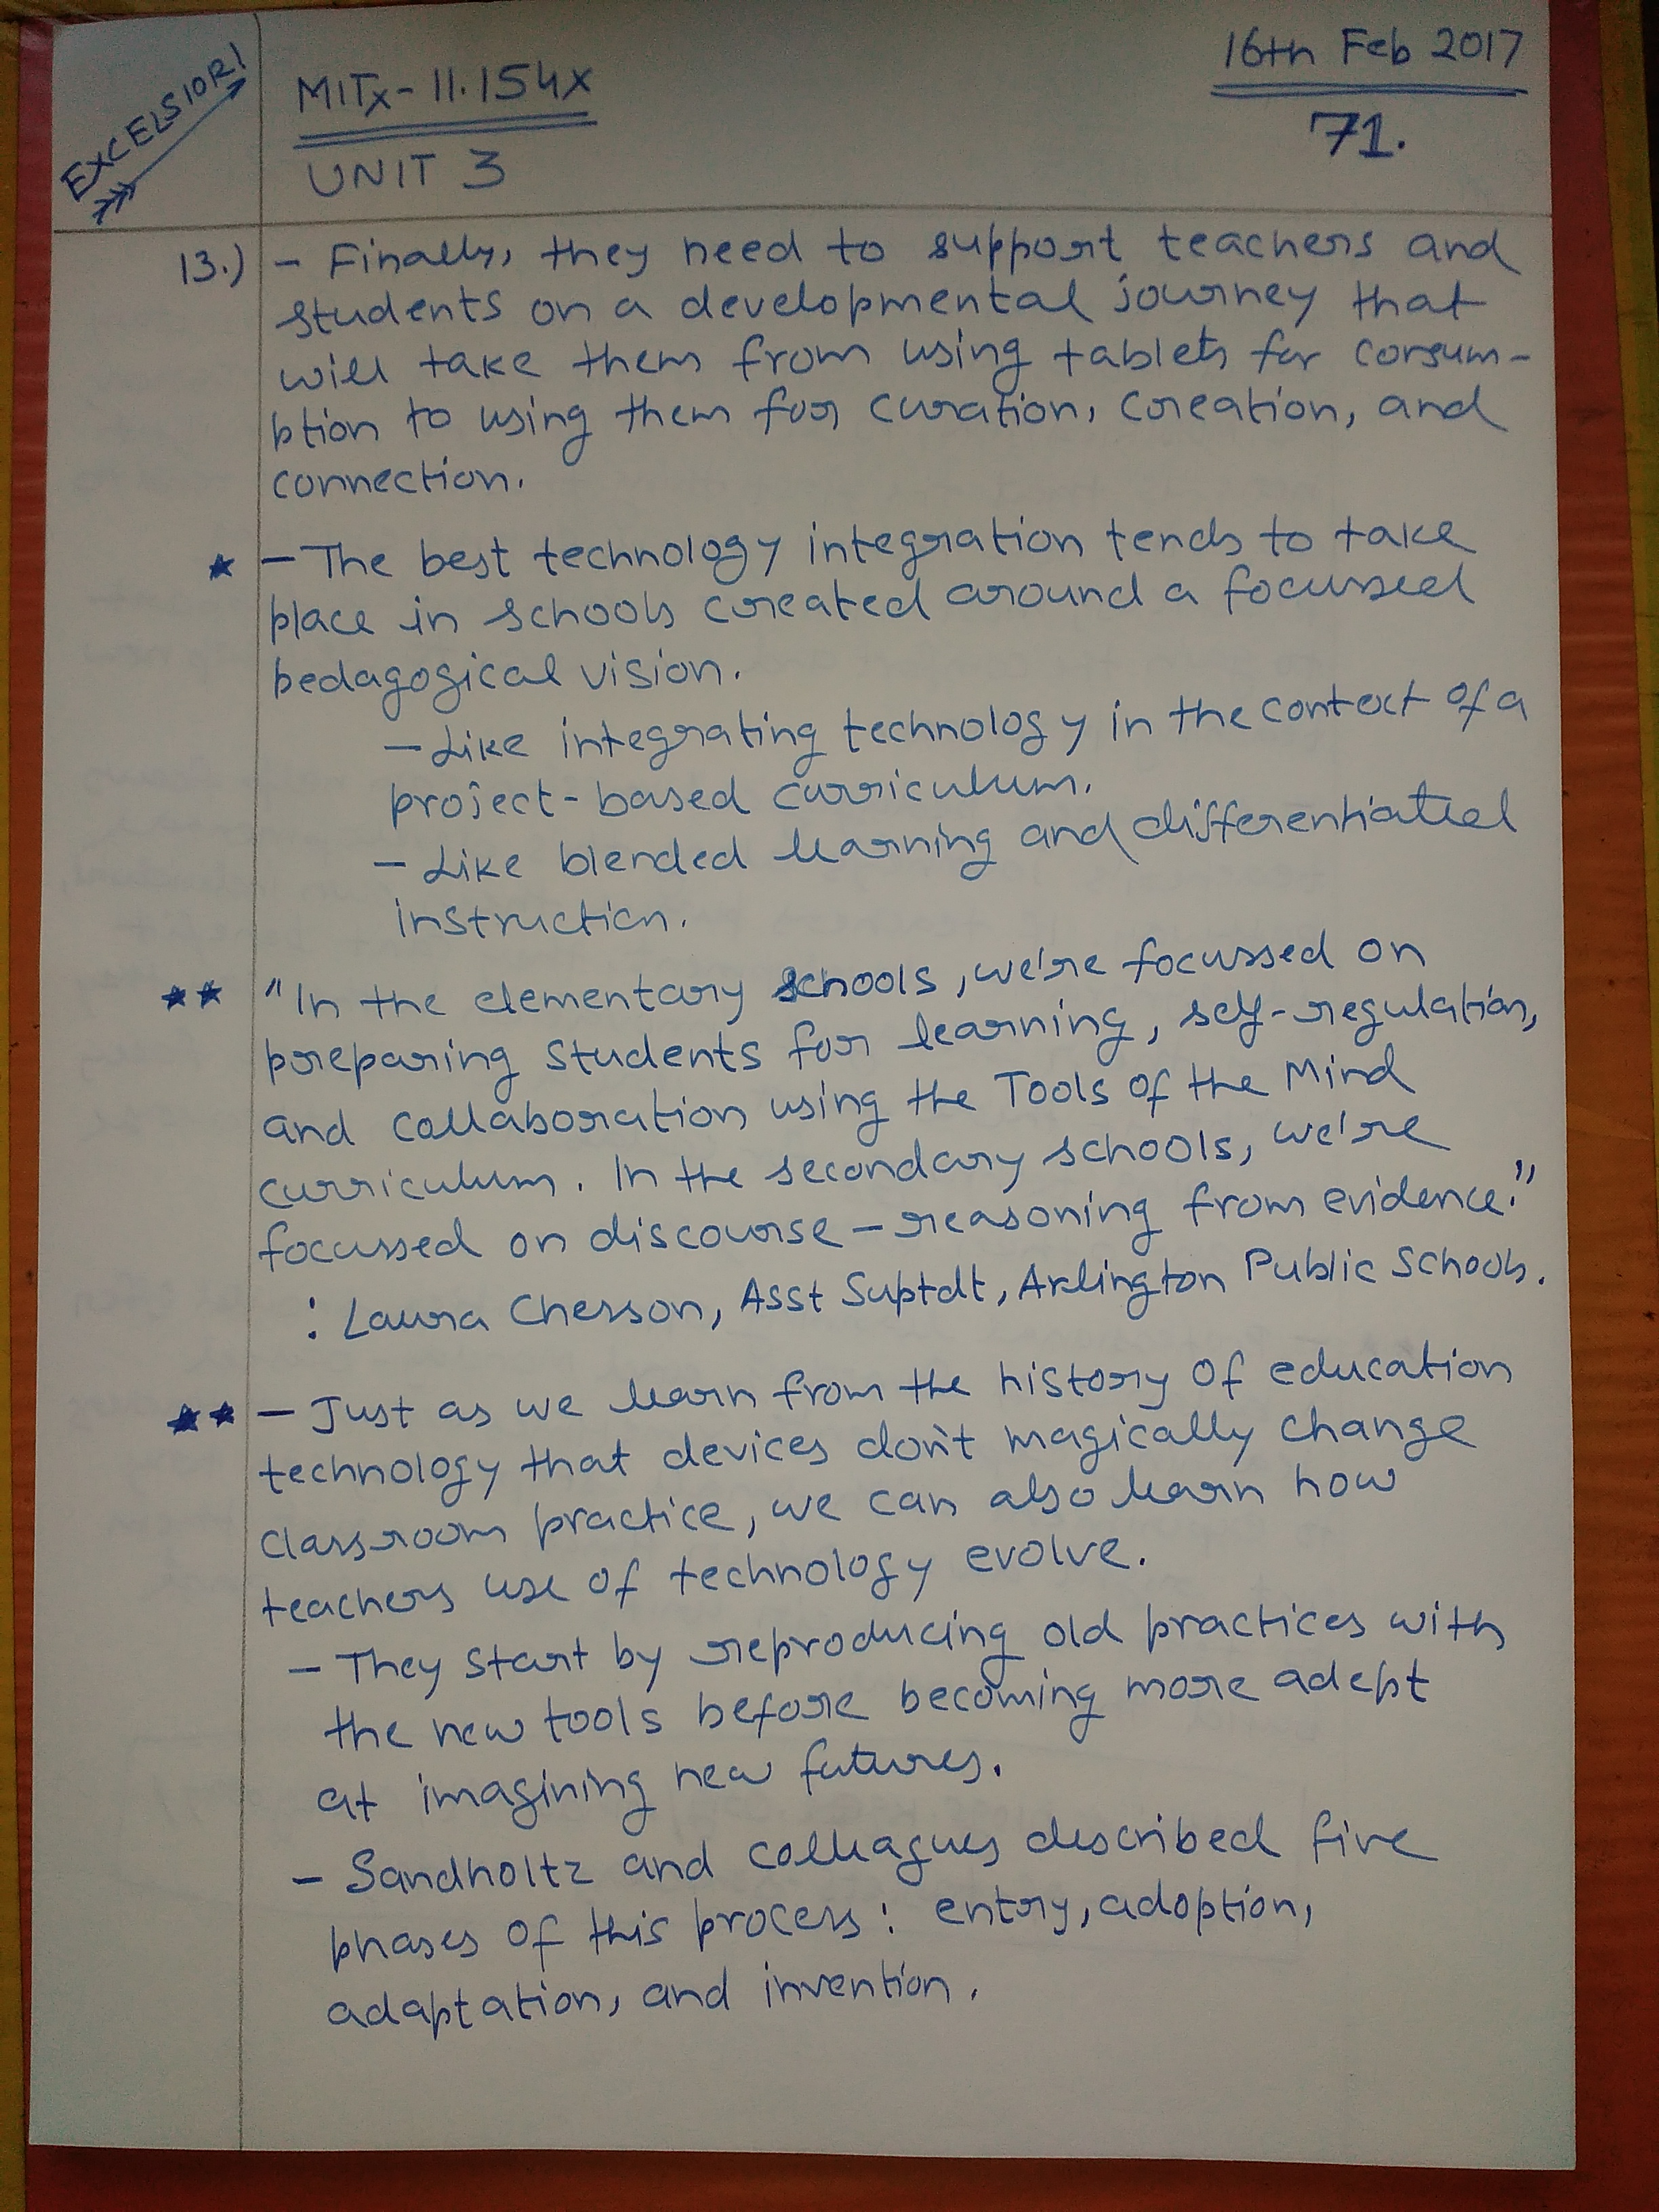 EXCELSIOR!
MITx - 11.154x
UNIT 3
16th Feb 2017
71.
13.) - Finally, they need to support teachers and
students on a developmental journey that
will take them from using tablets for consum-
ption to using them for curation, creation, and
connection.
★ - The best technology integration tends to take
place in schools created around a focussed
pedagogical vision.
- Like integrating technology in the context of a
project-based curriculum.
- Like blended learning and differentiated
instruction.
★★ "In the elementary schools, we're focussed on
preparing students for learning, self-regulation,
and collaboration using the Tools of the Mind
curriculum. In the secondary schools, we're
focussed on discourse - reasoning from evidence."
: Laura Chesson, Asst Suptdt, Arlington Public Schools.
★★ - Just as we learn from the history of education
technology that devices don't magically change
classroom practice, we can also learn how
teachers use of technology evolve.
- They start by reproducing old practices with
the new tools before becoming more adept
at imagining new futures.
- Sandholtz and colleagues described five
phases of this process: entry, adoption,
adaptation, and invention.